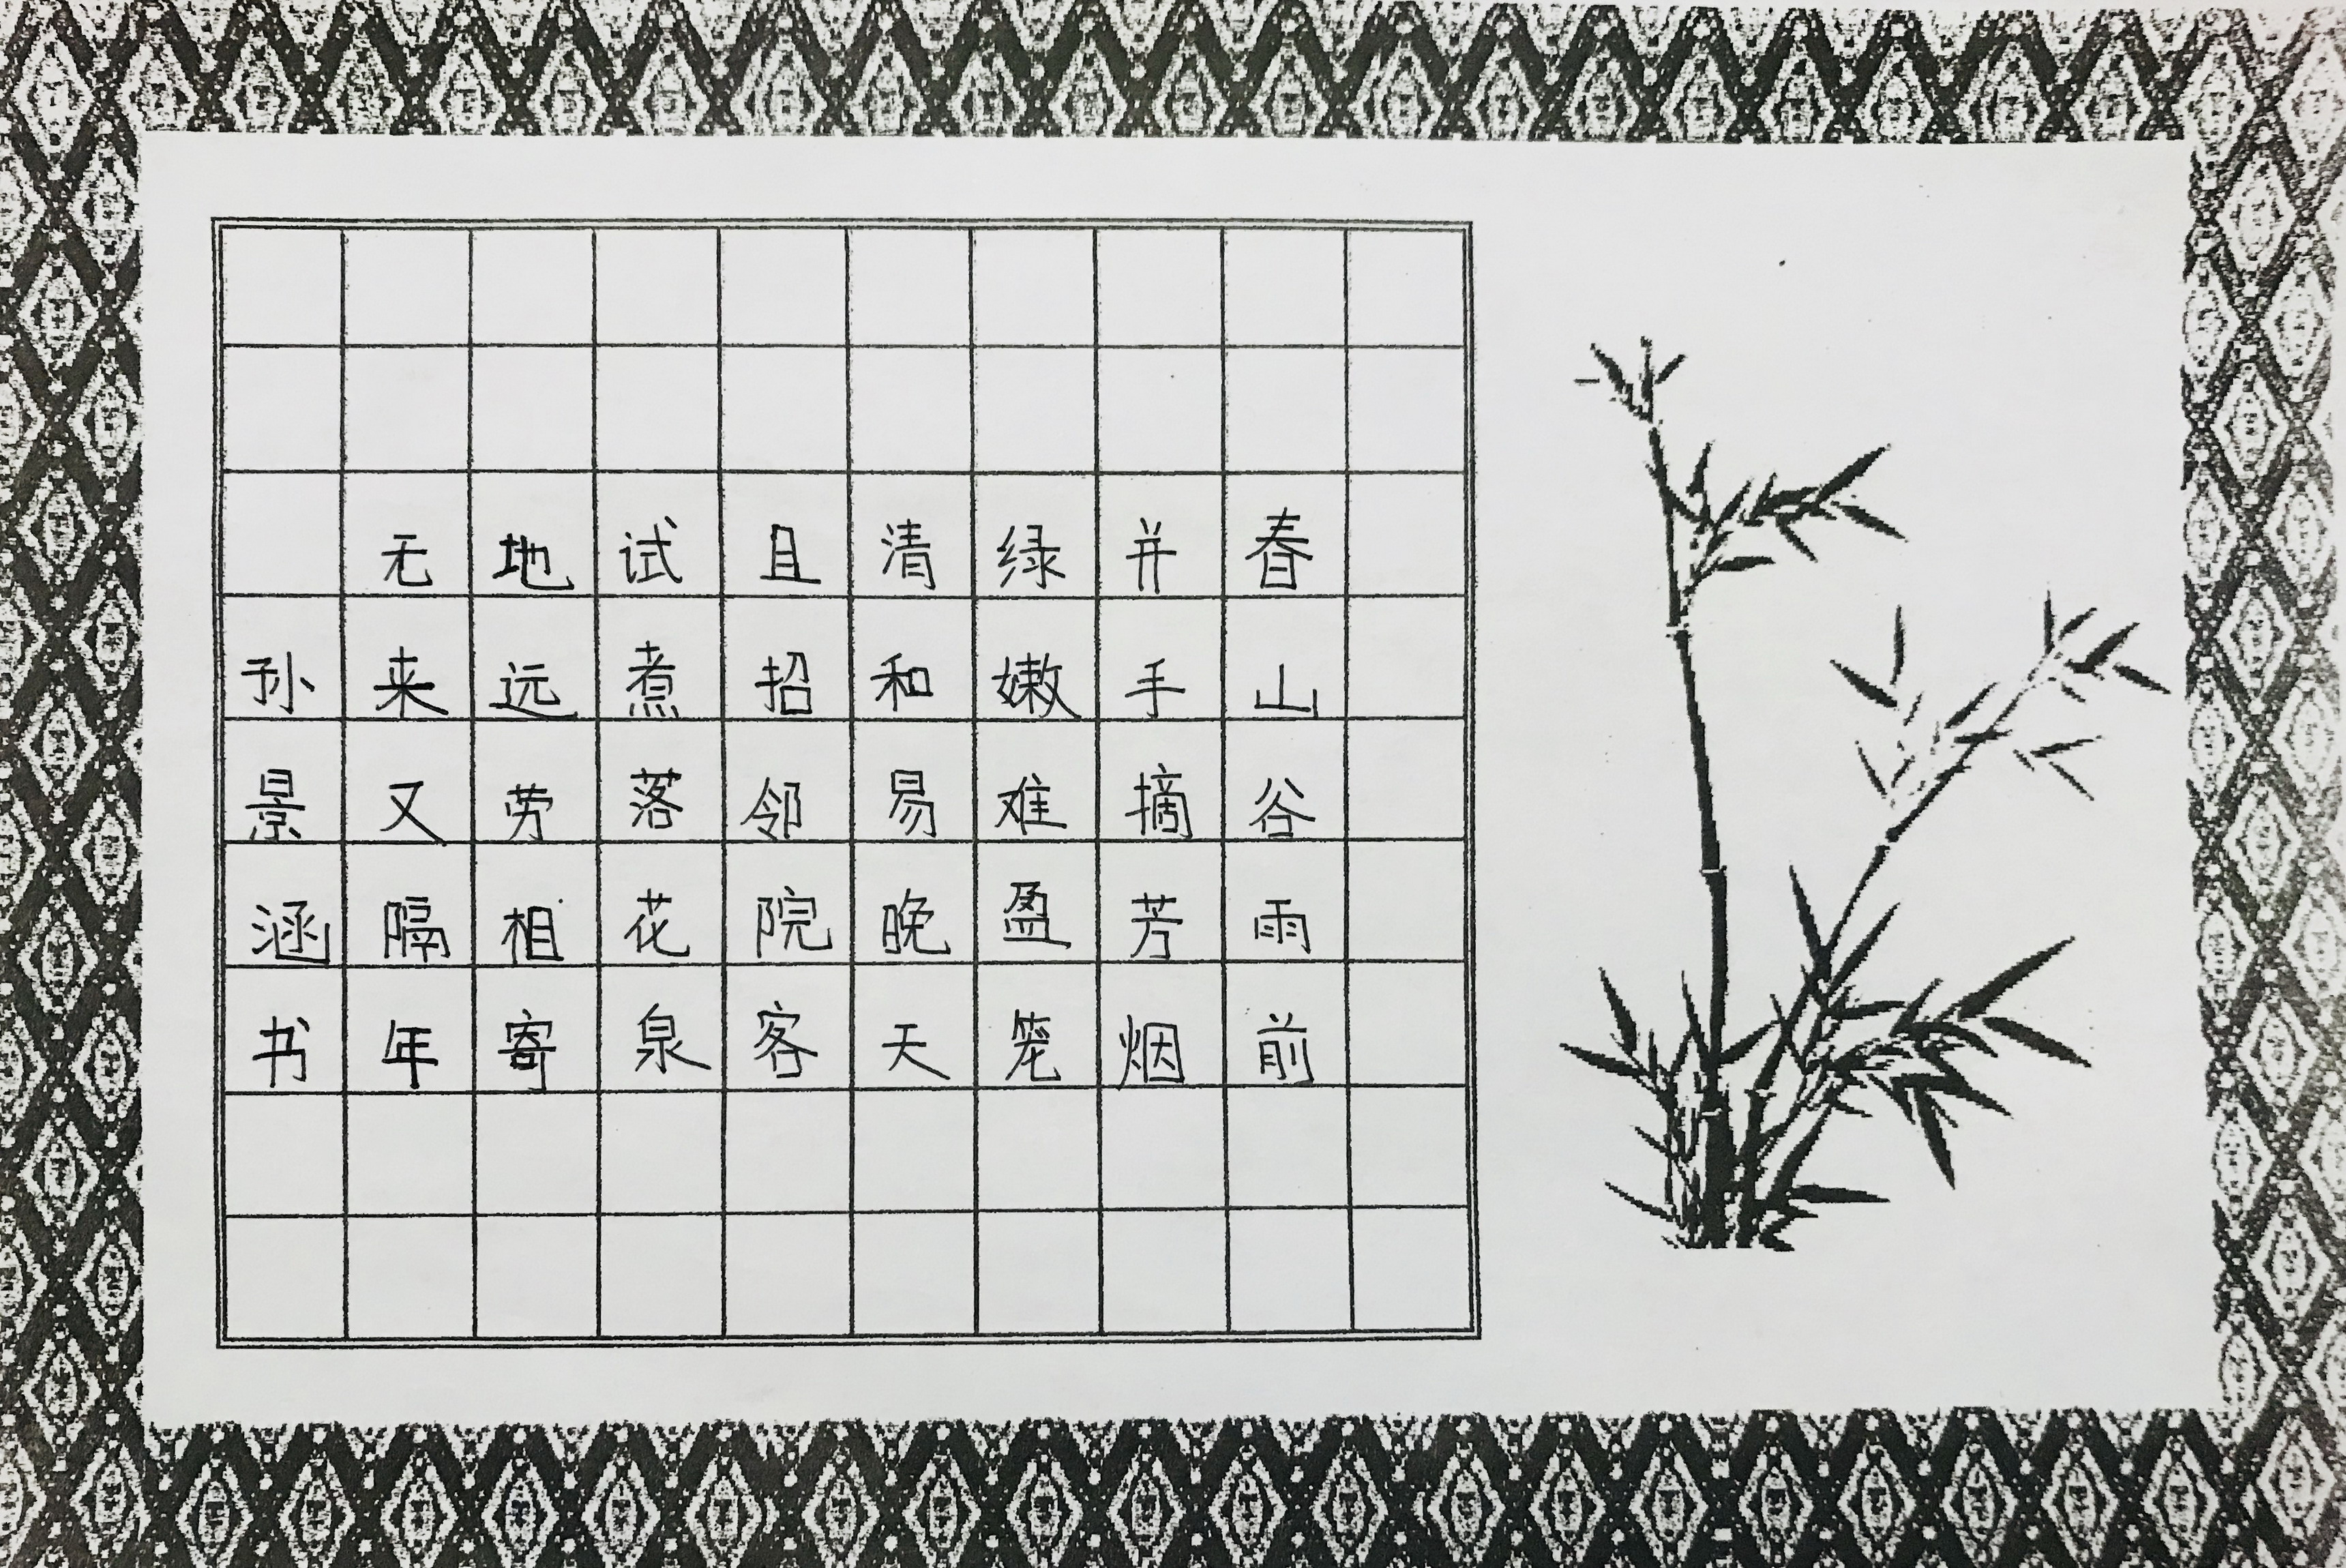 春山谷雨前
并手摘芳烟
绿嫩难盈笼
清和易晚天
且招邻院客
试煮落花泉
地远劳相寄
无来又隔年
孙景涵书